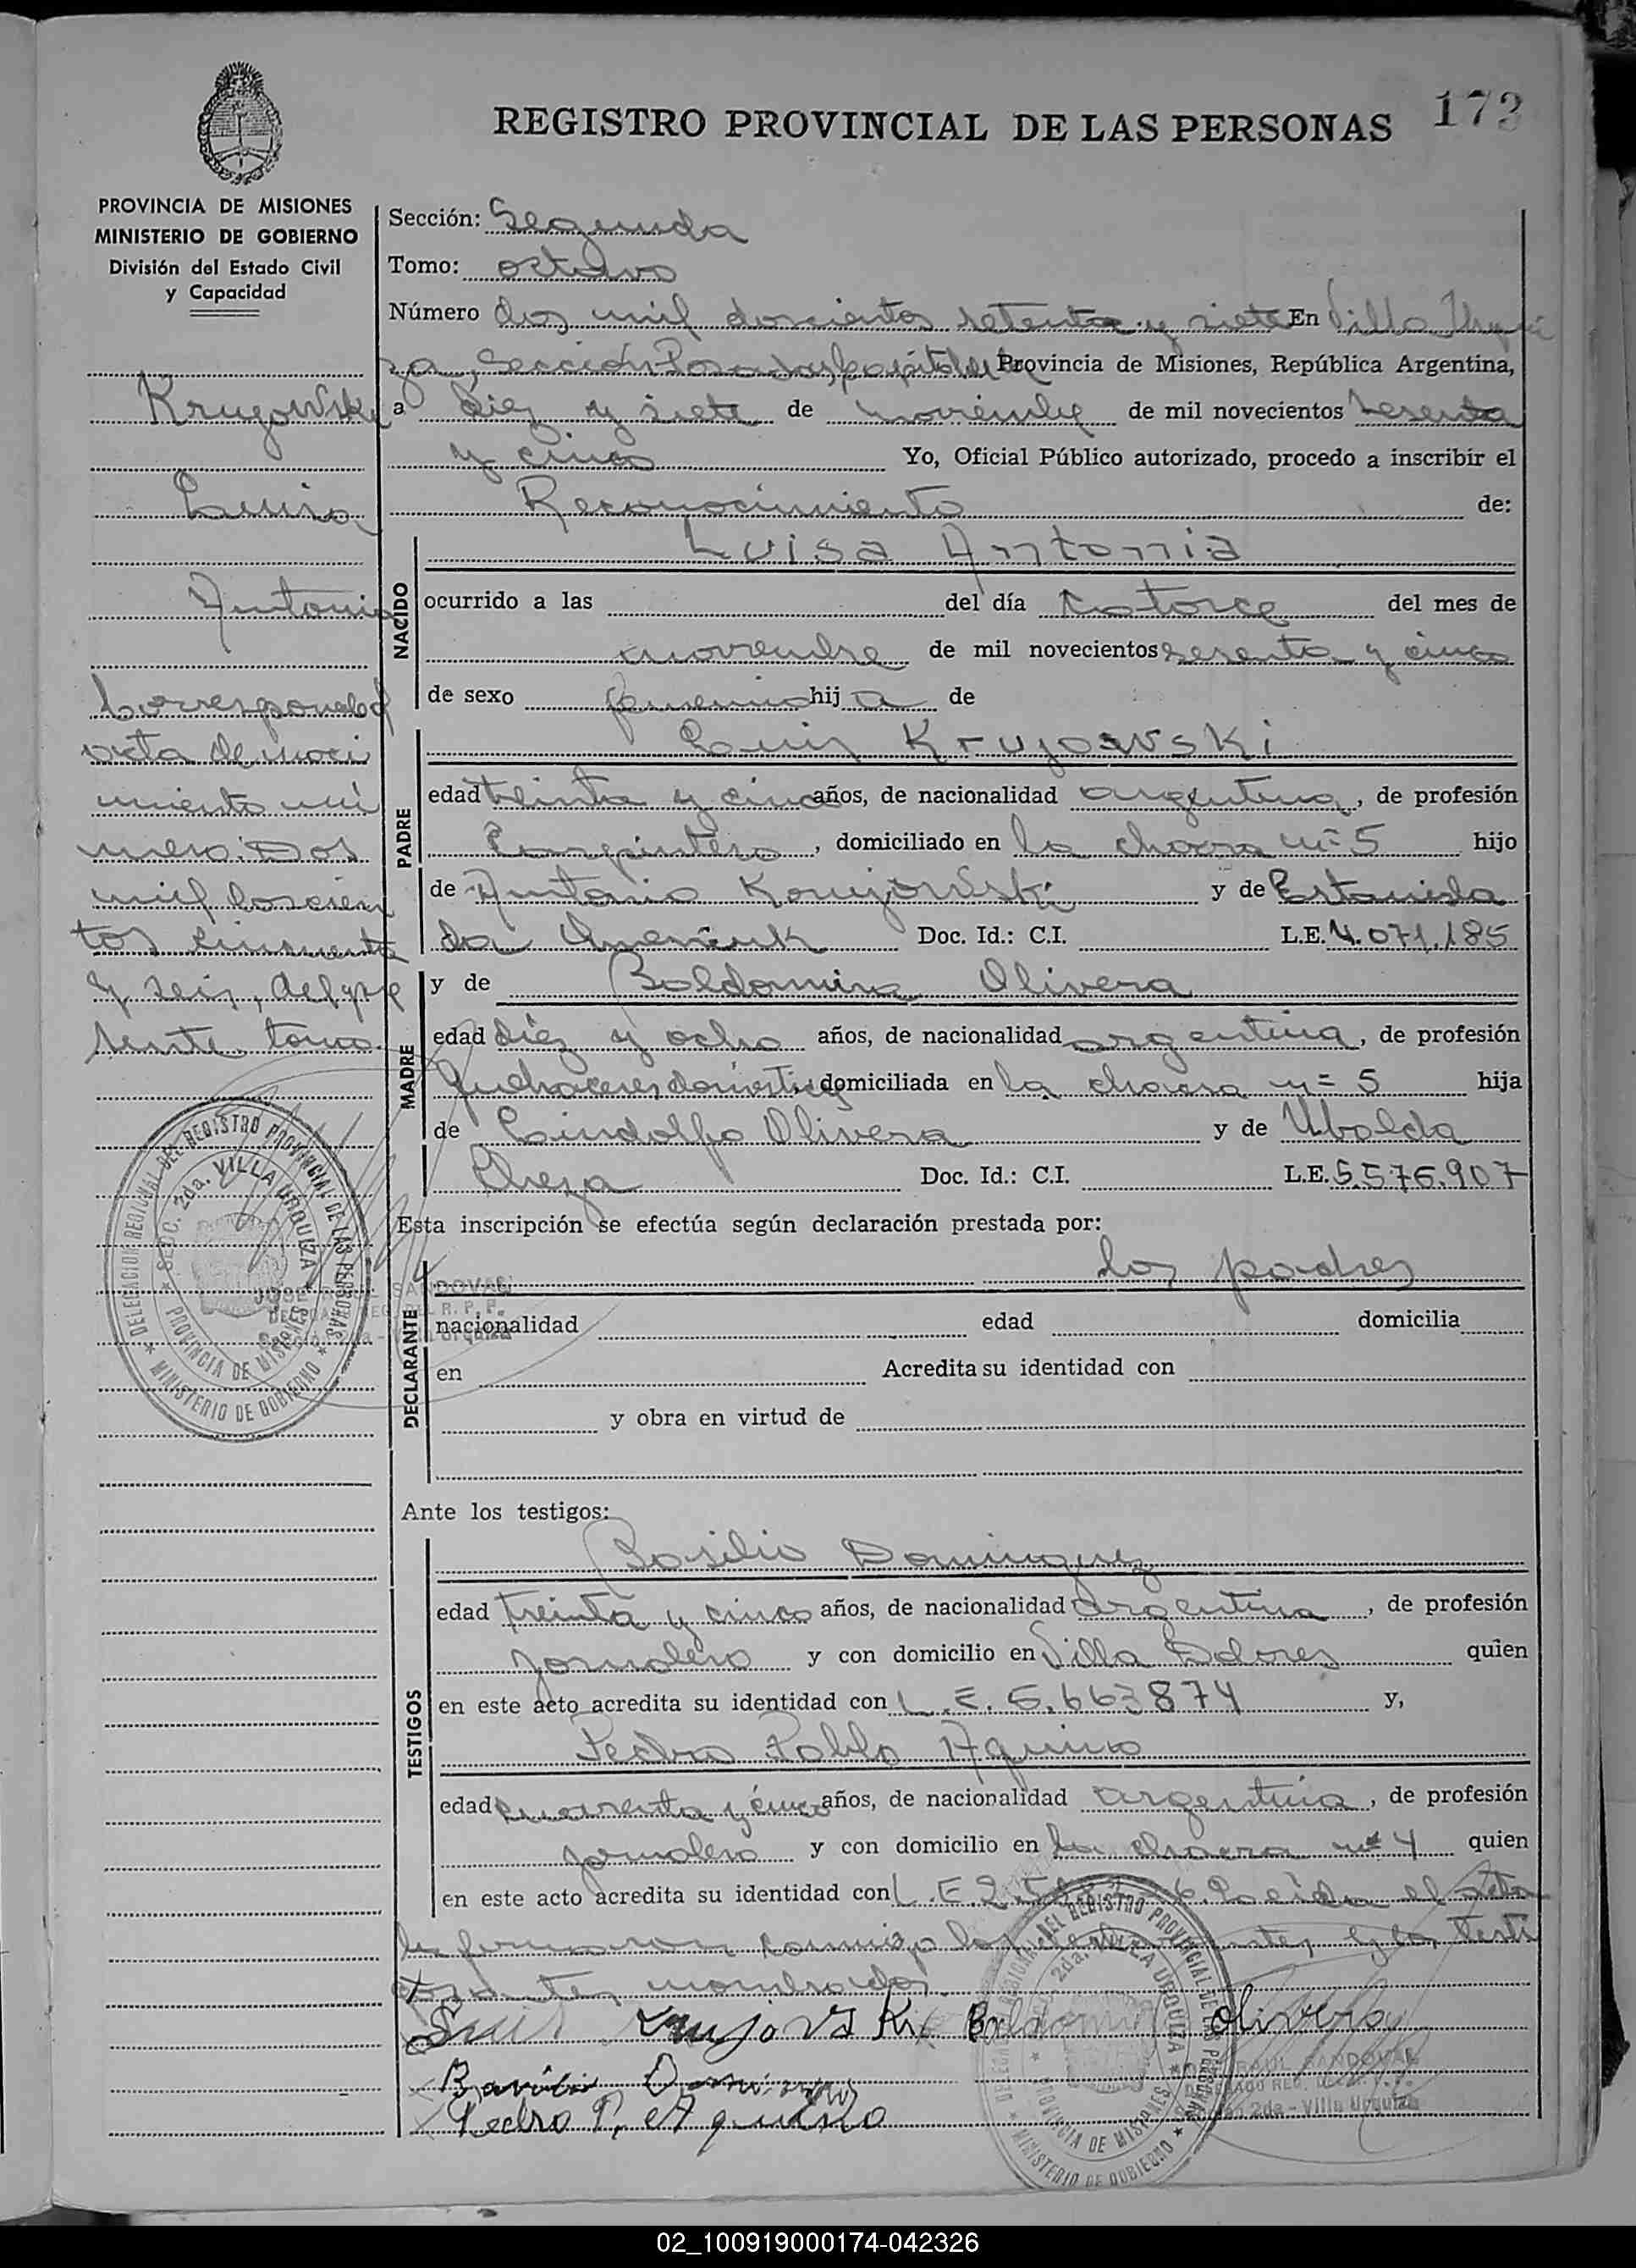 REGISTRO PROVINCIAL DE LAS PERSONAS
173
PROVINCIA DE MISIONES
MINISTERIO DE GOBIERNO
División del Estado Civil
y Capacidad
Krujowski
Luisa
Antonia
Corresponde al
acta de naci
miento nú
mero: Dos
mil doscien
tos cincuenta
y seis, del pre
sente tomo.
Sección: Segunda
Tomo: octavo
Número dos mil doscientos setenta y siete En Villa Urqui
za, Sección Posadas, Capital de la Provincia de Misiones, República Argentina,
a diez y siete de noviembre de mil novecientos sesenta
y cinco Yo, Oficial Público autorizado, procedo a inscribir el
Reconocimiento de:
NACIDO
Luisa Antonia
ocurrido a las del día catorce del mes de
noviembre de mil novecientos sesenta y cinco
de sexo femenino hij a de
PADRE
Luis Krujowski
edad treinta y cinco años, de nacionalidad argentina, de profesión
Carpintero, domiciliado en la chacra nº 5 hijo
de Antonio Krujowski y de Estanisla
da Doc. Id.: C.I. L.E. 4.071.185
MADRE
y de Baldomira Olivera
edad diez y ocho años, de nacionalidad argentina, de profesión
quehaceres domésticos domiciliada en la chacra nº 5 hija
de Lindolfo Olivera y de Ubalda
Doc. Id.: C.I. L.E. 5.576.907
Esta inscripción se efectúa según declaración prestada por:
DECLARANTE
los padres
nacionalidad edad domicilia
en Acredita su identidad con
y obra en virtud de
Ante los testigos:
TESTIGOS
Basilio Dominguez
edad treinta y cinco años, de nacionalidad argentina, de profesión
jornalero y con domicilio en Villa Dolores quien
en este acto acredita su identidad con L.E. 5.663874 y,
Pedro Pablo Aquino
edad cuarenta y cinco años, de nacionalidad argentina, de profesión
jornalero y con domicilio en la chacra nº 4 quien
en este acto acredita su identidad con L.E. 2. Leída el acta
la firmaron conmigo los y los testi
nombrados.
Luis Krujovski Baldomira Olivera
Dominguez
Pedro P. Aquino
DELEGACION REGIONAL DEL REGISTRO PROVINCIAL DE LAS PERSONAS
SECC. 2da. VILLA URQUIZA
PROVINCIA DE MISIONES
MINISTERIO DE GOBIERNO
JOSE RAUL SANDOVAL
DELEGADO REG. DEL R. P. P.
Sección 2da - Villa Urquiza
DELEGACION REGIONAL DEL REGISTRO PROVINCIAL DE LAS PERSONAS
2da. VILLA URQUIZA
PROVINCIA DE MISIONES
MINISTERIO DE GOBIERNO
RAUL SANDOVAL
DELEGADO REG.
2da - Villa Urquiza
02_100919000174-042326